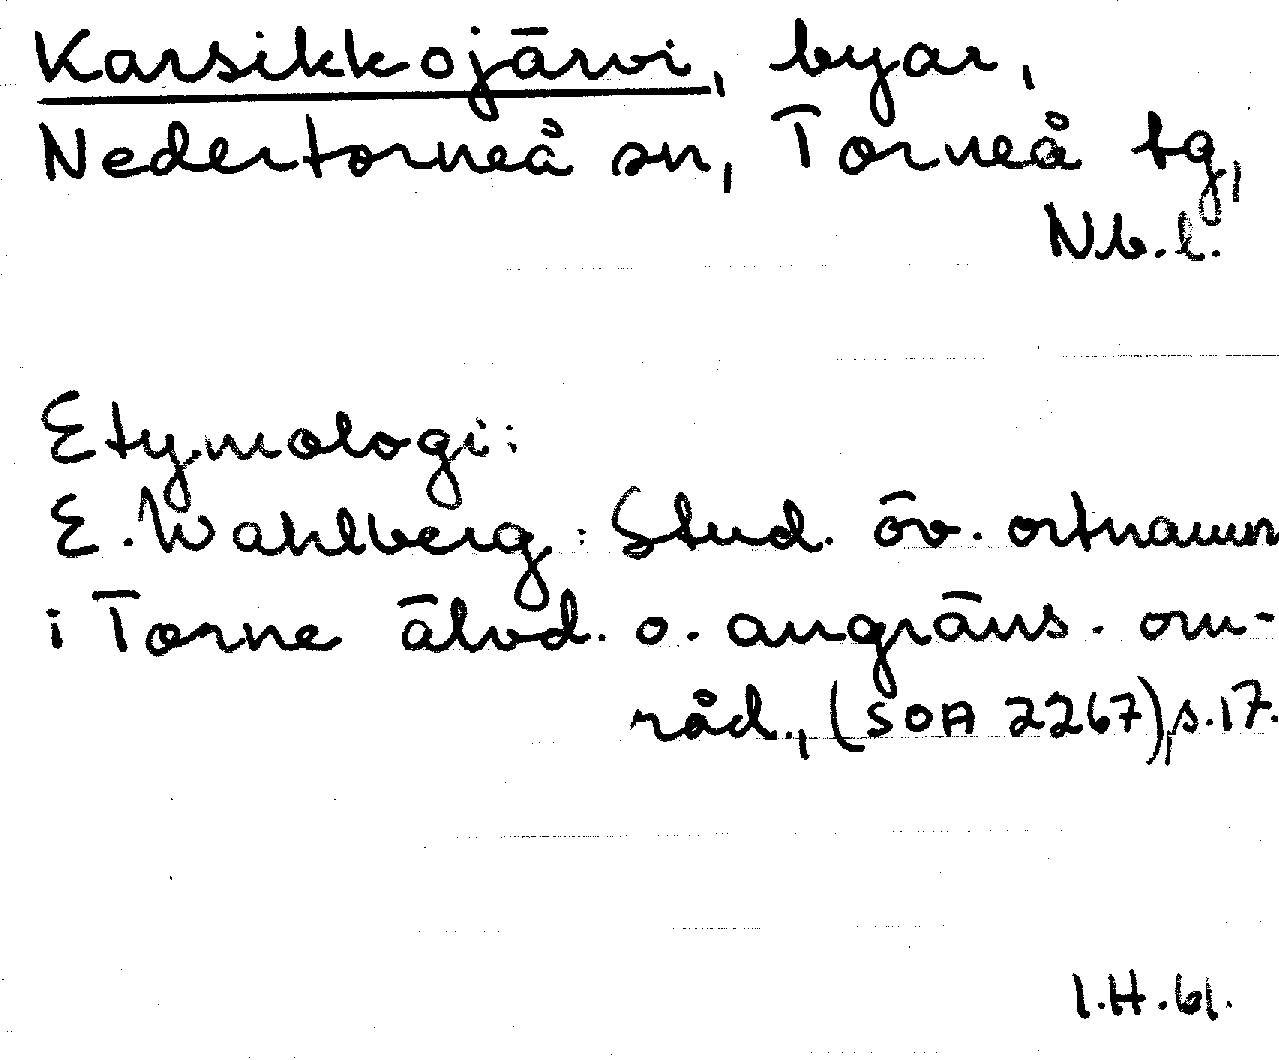 Karsikkojärvi, byar,
Nedertorneå sn, Torneå tg,
Nb.l.
Etymologi:
E. Wahlberg: Stud. öv. ortnamn
i Torne älvd. o. angräns. om-
råd., (SOA 2267), s. 17.
I.H. 61.